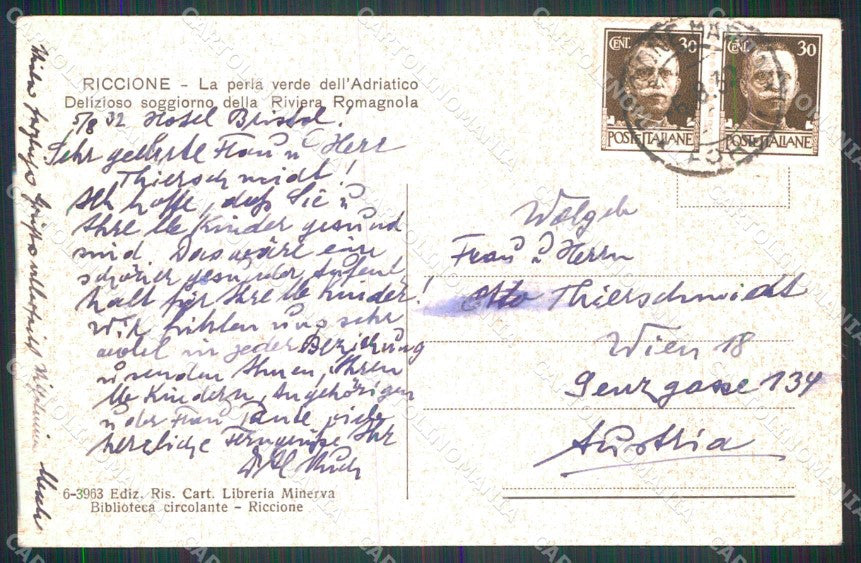 RICCIONE - La perla verde dell'Adriatico
Delizioso soggiorno della Riviera Romagnola
5/8 32 Hotel Bristol.
Sehr geehrte Frau u Herr
Thierschmidt!
Ich hoffe, daß Sie u
Ihre lb Kinder gesund
sind. Das wäre ein
schöner gesunder Aufent
halt für Ihre lb Kinder!
Wir fühlen uns sehr
wohl in jeder Beziehung
u senden Ihnen, Ihren
lb Kindern, Angehörigen
u der Frau Tante viele
herzliche Ferngrüße Ihr
Viele
CENT. 30
POSTE ITALIANE
CENT. 30
POSTE ITALIANE
Wolgeb
Frau u Herrn
Otto Thierschmidt
Wien 18
Genzgasse 134
Austria
6-3963 Ediz. Ris. Cart. Libreria Minerva
Biblioteca circolante - Riccione
CARTOLINOMANIA